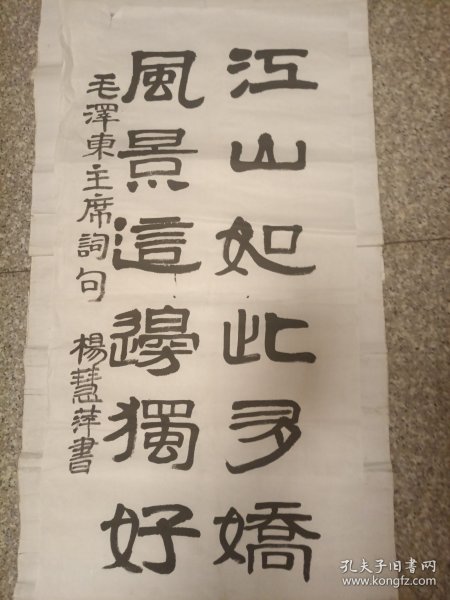 江山如此多嬌
風景這邊獨好
毛澤東主席詞句 楊慧萍書
孔夫子旧书网
www.kongfz.com